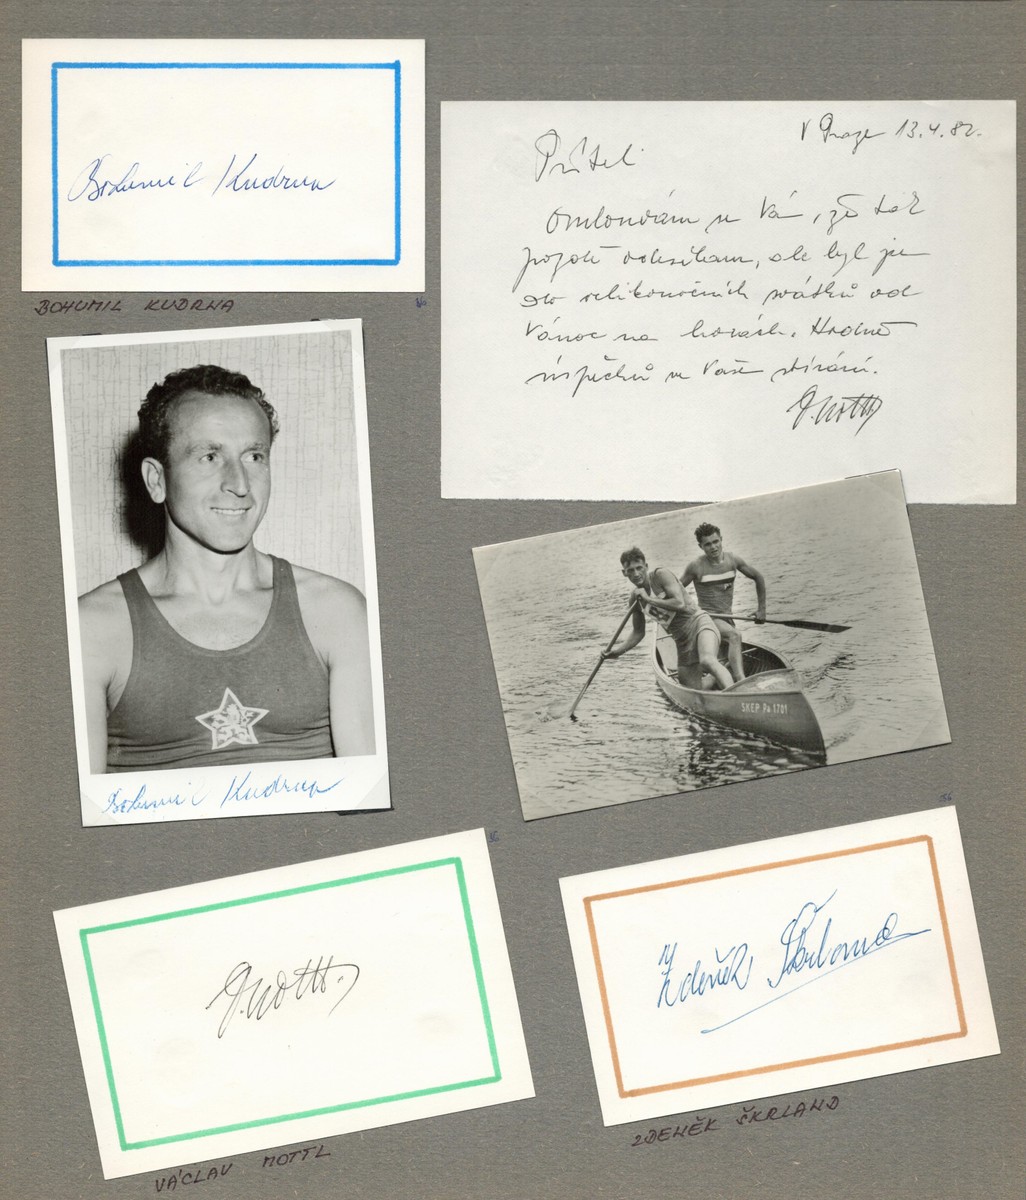 Bohumil Kudrna
BOHUMIL KUDRNA
V Praze 13.4.82.
Příteli
Omlouvám se Vám, že tak
pozdě odesílám, ale byl jsem
do velikonočních svátků od
Vánoc na horách. Hodně
úspěchů ve Vaše sbírání.
V. Mottl
Bohumil Kudrna
SKEP Pa 1701
V. Mottl
VÁCLAV MOTTL
Zdeněk Škrland
ZDENĚK ŠKRLAND